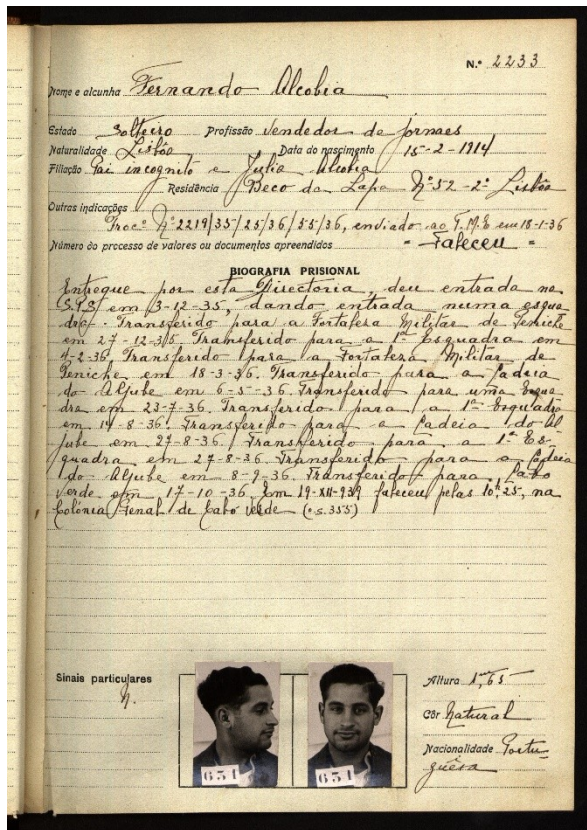 N.º 2233
Nome e alcunha Fernando Alcobia
Estado Solteiro Profissão Vendedor de jornaes
Naturalidade Lisbôa Data do nascimento 15-2-1914
Filiação Pai incognito e Julia Alcobia
Residência Beco da Lapa Nº 52-2º Lisbôa
Outras indicações
Proc.º Nº 2219/35/25/36/55/36, enviado ao T.M.E em 18-1-36
Número do processo de valores ou documentos apreendidos - Faleceu -
BIOGRAFIA PRISIONAL
Entregue por esta Directoria, deu entrada na
S.P.S em 3-12-35, dando entrada numa esqua
dra. Transferido para a Fortaleza Militar de Peniche
em 27-12-35. Transferido para a 1ª Esquadra em
4-2-36. Transferido para a Fortaleza Militar de
Peniche em 18-3-36. Transferido para a Cadeia
do Aljube em 6-5-36. Transferido para uma Esqua
dra em 23-7-36. Transferido para a 1ª Esquadra
em 14-8-36. Transferido para a Cadeia do Al
jube em 27-8-36. Transferido para a 1ª Es-
quadra em 27-8-36. Transferido para a Cadeia
do Aljube em 8-9-36. Transferido para Cabo
Verde em 17-10-36. Em 19-XII-939 faleceu pelas 10h,25, na
Colónia Penal de Cabo Verde (o.s.355)
Sinais particulares
N.
651
651
Altura 1m,65
Côr Natural
Nacionalidade Portu-
guêsa